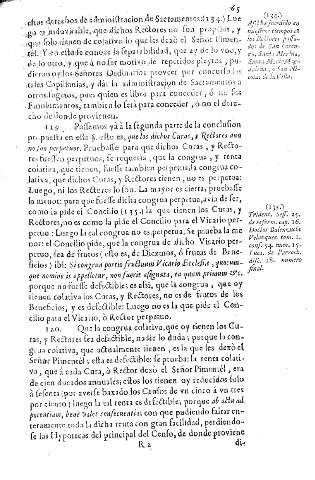 65
estos derechos de administracion de Sacramentos (134.) Lue
go es indubitable, que dichos Rectores no son propios, y
que solo tienen de colativo lo que les dexò el Señor Pimen
tèl. Y en esto se conoce la separabilidad, que ay de lo uno, y
de lo otro, y que à no ser motivo de repetidos pleytos, pu-
dieron los Señores Ordinarios proveer por concurso las
tales Capellanias, y dàr la administracion de Sacramentos à
otros sugetos, pues quien es libre para conceder, ò no sus
Emolumentos, tambien lo serà para conceder, ò no el dere-
cho de donde provienen.
119. Passemos yà à la segunda parte de la conclusion
propuesta en esta §. esto es, que los dichos Curas, y Rectores aun
no son perpetuos. Pruebasse: Para que dichos Curas, y Rec-
tores fuessen perpetuos, se requeria, que la congrua, y renta
colativa, que tienen, fuesse tambien perpetua; la congrua co-
lativa, que dichos Curas, y Rectores tienen, no es perpetua:
Luego, ni los Rectores lo son. La mayor es cierta; pruebasse
la menor: para que fuesse dicha congrua perpetua, avia de ser,
como la pide el Concilio (135.) la que tienen los Curas, y
Rectores, no es como la pide el Concilio para el Vicario per-
petuo: Luego la tal congrua no es perpetua. Se prueba la me
nor: el Concilio pide, que la congrua de dicho Vicario per-
petuo, sea de frutos; (esto es, de Diezmos, ò frutos de Bene-
ficios) ibi: Si congrua portio fructuum Vicario Ecclesiæ, quocum-
que nomine is appelletur, non fuerit assignata, ea quam primum &c.
porque no fuesse defectible: es assi, que la congrua, que oy
tienen colativa los Curas, y Rectores, no es de frutos de los
Beneficios, y es defectible: Luego no es la que pide el Con-
cilio para el Vicario, ò Rector perpetuo.
120. Que la congrua colativa, que oy tienen los Cu-
ras, y Rectores sea defectible, nadie lo duda; porque la con-
grua colativa, que actualmente tienen, es la que les dexò el
Señor Pimentèl; esta es defectible: se prueba: la renta colati-
va, que à cada Cura, ò Rector dexò el Señor Pimentèl, era
de cien ducados anuales; estos los tienen oy reducidos solo
à sesenta (por averse baxado los Censos de un cinco à un tres
por ciento) luego la tal renta es defectible, porque ab actu ad
potentiam, bene valet consequentia: con que pudiendo faltar en-
teramente toda la dicha renta con gran facilidad, perdiendo-
se las Hypotecas del principal del Censo, de donde proviene
R 2 di-
(134.)
Assi ha sucedido en
nuestros tiempos con
los Rectores passa-
dos de San Loren-
zo, Santa Marina,
(135.)
Trident. sess. 25.
de reform. cap. 16.
Doctor Balenzuela
Velazquez tom. 1.
cons. 34. num. 15.
Luca de Paroch.
disc. 18. numero
final.